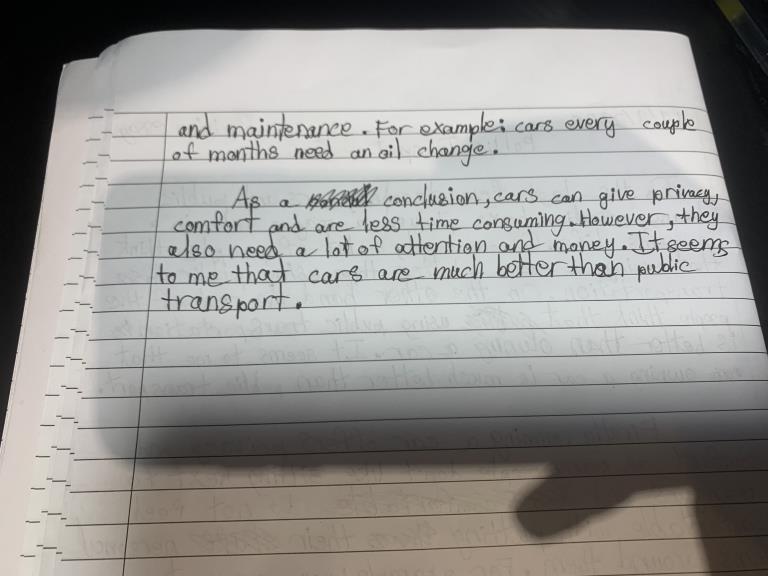 and maintenance. For example: cars every couple
of months need an oil change.
As a conclusion, cars can give privacy,
comfort and are less time consuming. However, they
also need a lot of attention and money. It seems
to me that cars are much better than public
transport.